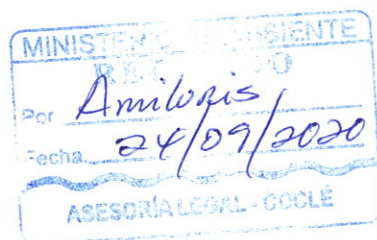 MINISTERIO DE AMBIENTE
RECIBIDO
Por Amilonis
Fecha 24/09/2020
ASESORÍA LEGAL - COCLÉ